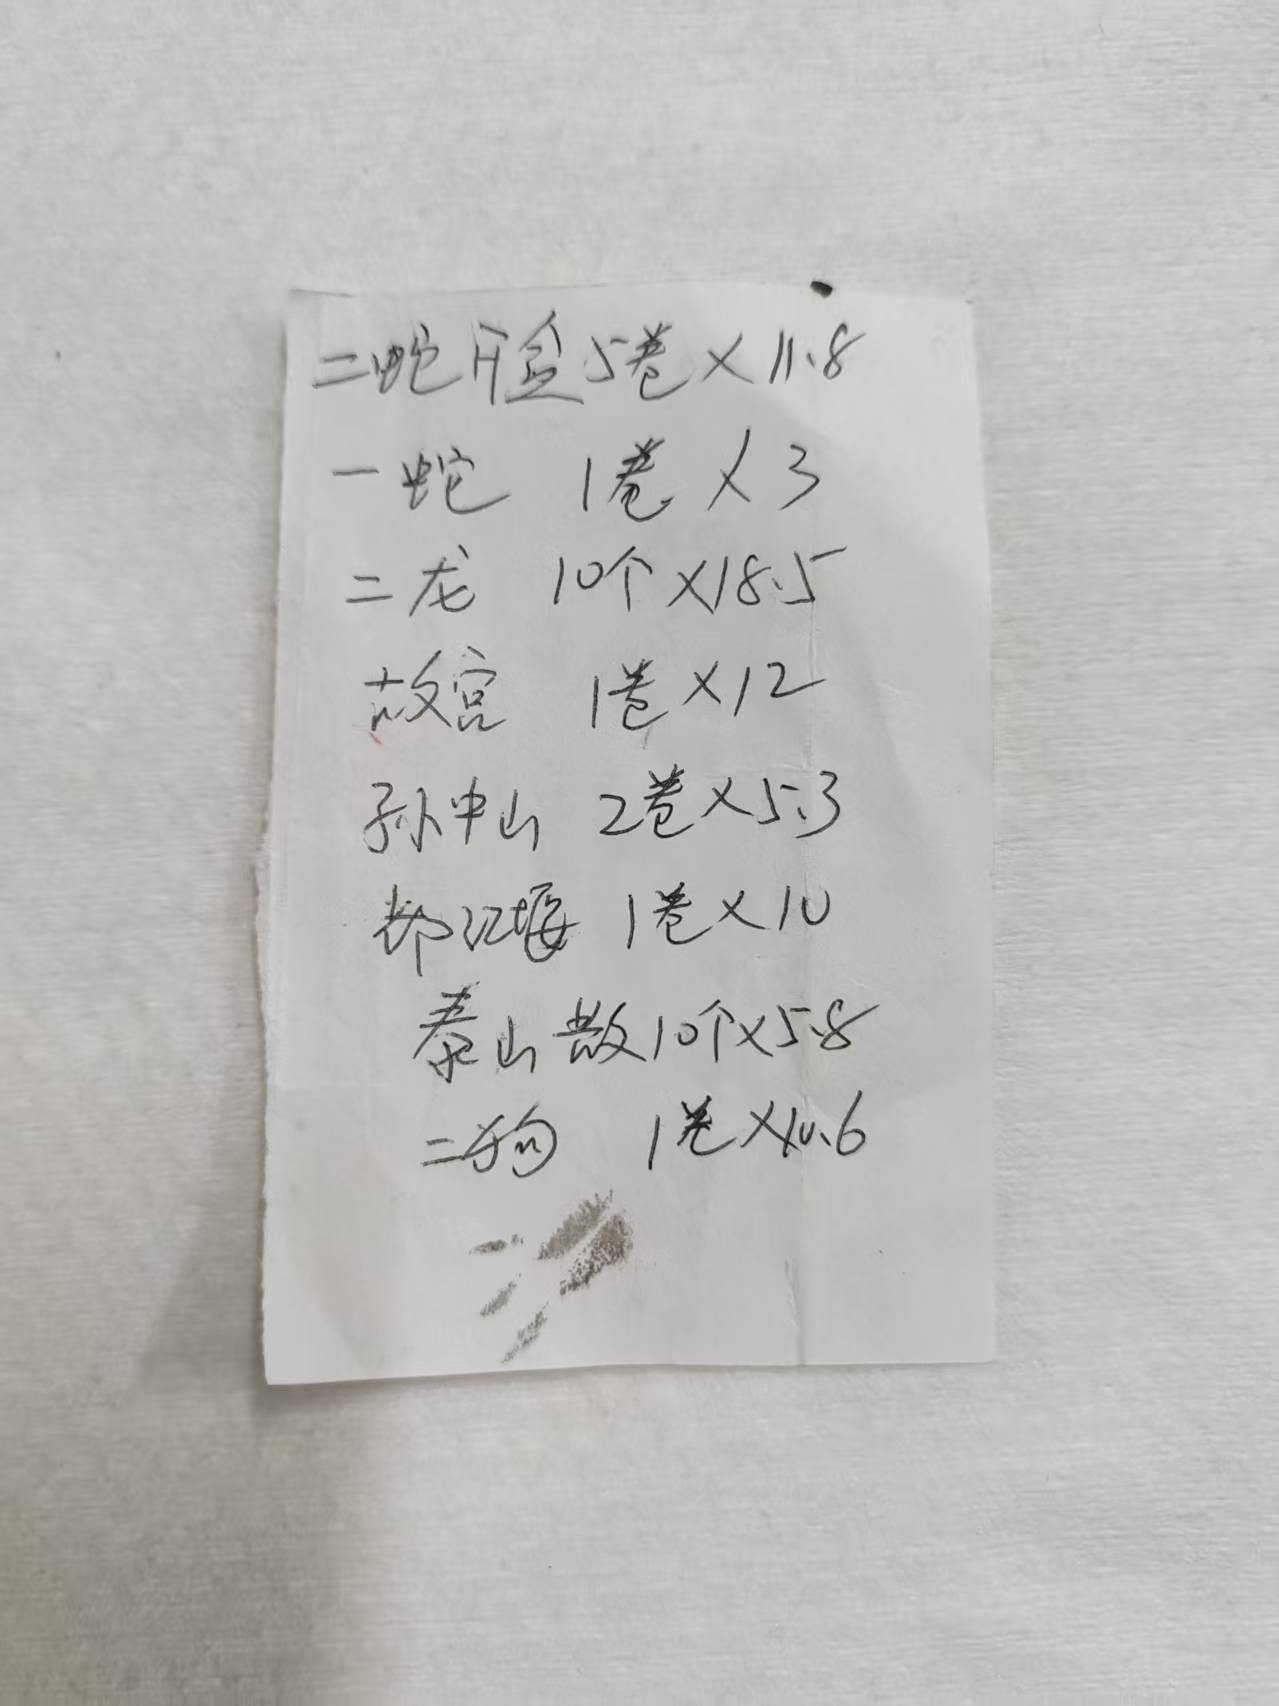 二蛇开盒5卷×11.8
一蛇 1卷×3
二龙 10个×18.5
故宫 1卷×12
孙中山 2卷×5.3
都江堰 1卷×10
泰山散10个×5.8
二狗 1卷×10.6